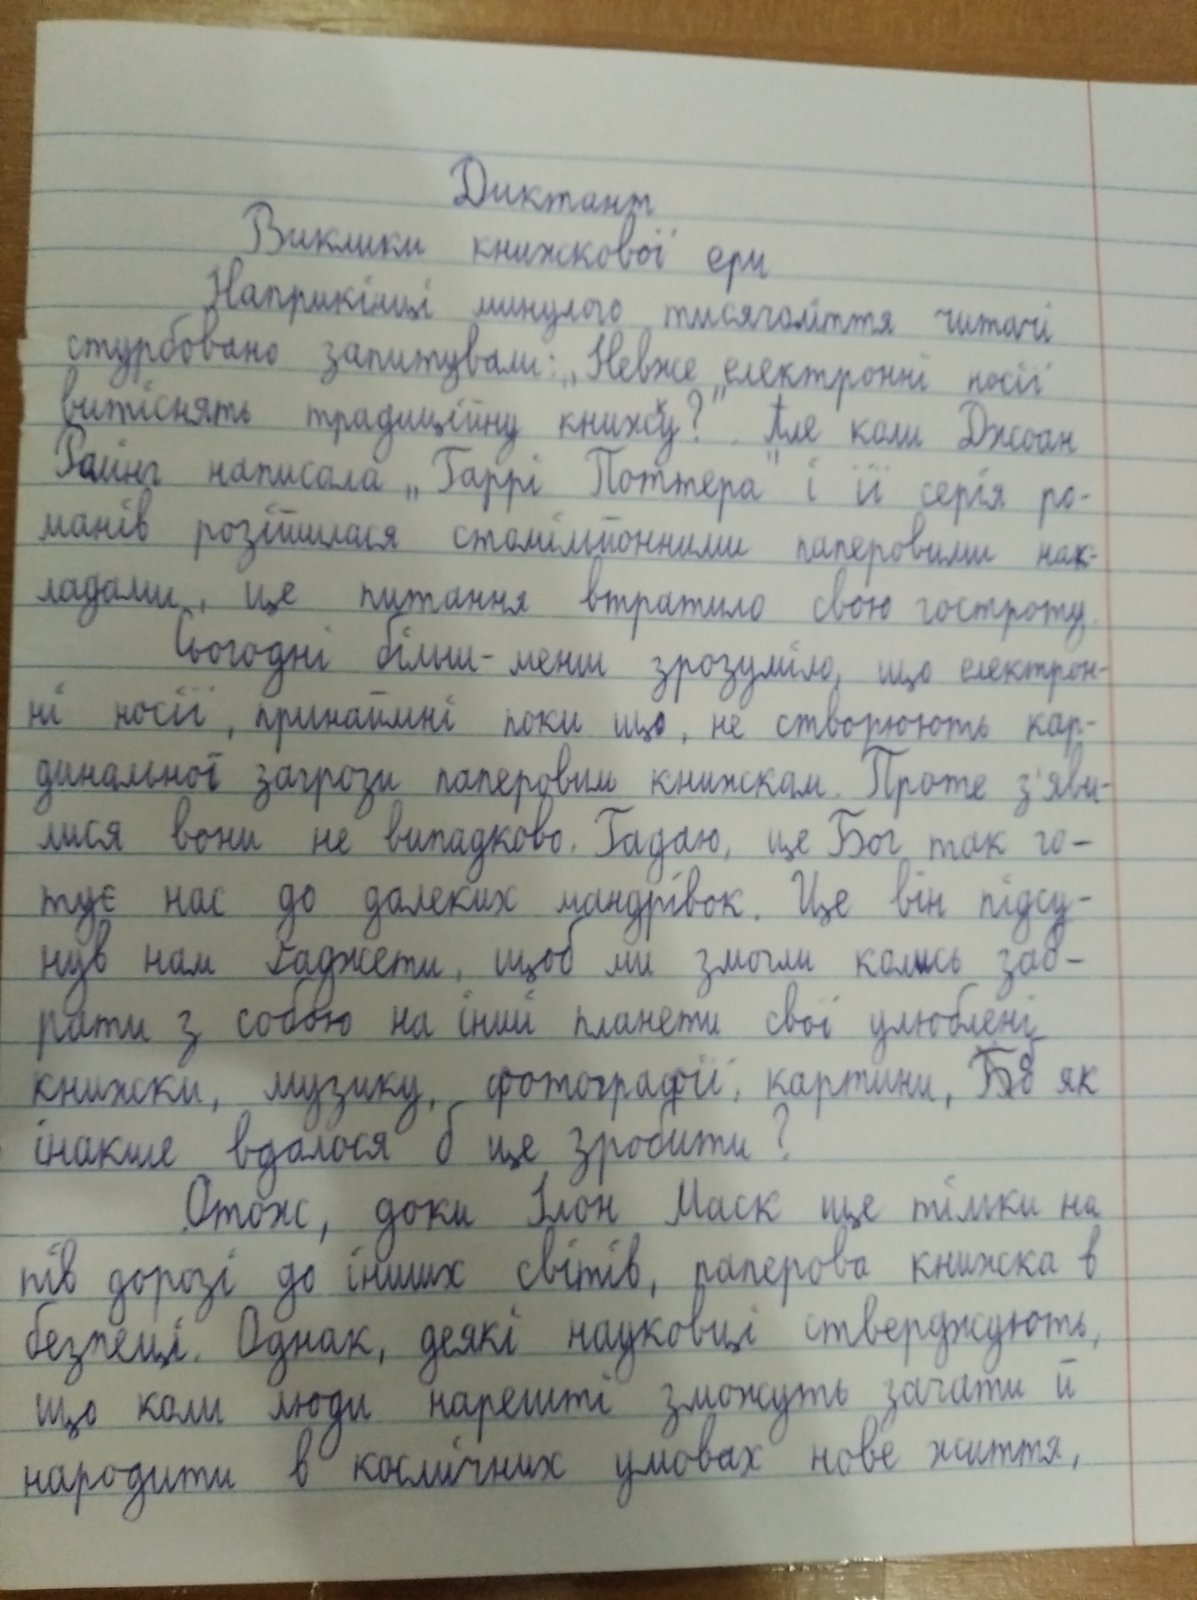 Диктант
Виклики книжкової ери
Наприкінці минулого тисячоліття читачі
стурбовано запитували: „Невже електронні носії
витіснять традиційну книжку?". Але коли Джоан
Ролінг написала „Гаррі Поттера" і її серія ро-
манів розійшлася стомільйонними паперовими нак-
ладами, це питання втратило свою гостроту.
Сьогодні більш-менш зрозуміло, що електрон-
ні носії, принаймні поки що, не створюють кар-
динальної загрози паперовим книжкам. Проте з'яви-
лися вони не випадково. Гадаю, це Бог так го-
тує нас до далеких мандрівок. Це він підсу-
нув нам ґаджети, щоб ми змогли колись заб-
рати з собою на інші планети свої улюблені
книжки, музику, фотографії, картини, Бо як
інакше вдалося б це зробити?
Отож, доки Ілон Маск ще тільки на
пів дорозі до інших світів, паперова книжка в
безпеці. Однак, деякі науковці стверджують,
що коли люди нарешті зможуть зачати й
народити в космічних умовах нове життя,